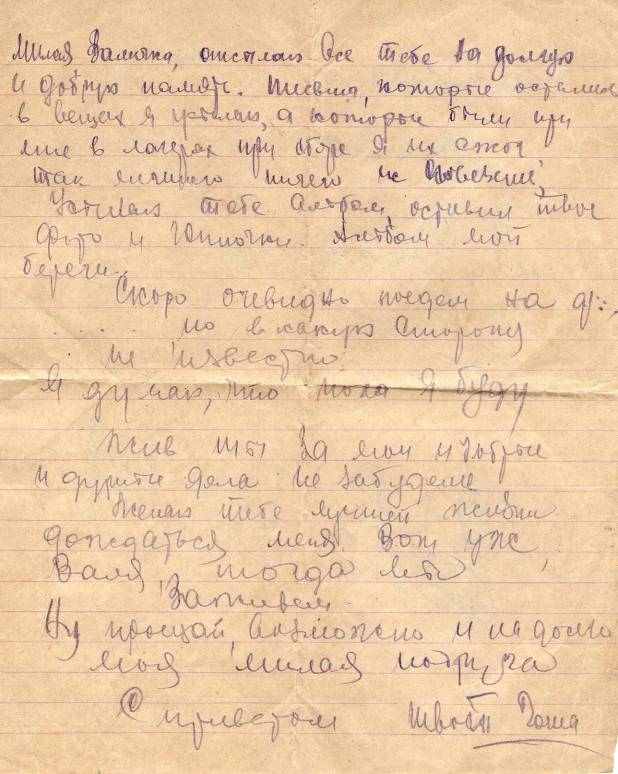 Милая Валичка, отсылаю все тебе на долгую
и добрую память. Письма, которые остались
в вещах я усылаю, а которые были при
мне в лагерях при сборе я их сжег
так лишнего ничего не
Усылаю тебе альбом, оставил твое
фото и Альбом мой
береги.
Скоро очевидно поедем на
но в какую сторону
не известно.
Я думаю, что пока я буду
жив ты за мои и добрые
и другие дела не забудешь
Желаю тебе лучшей жизни
дождаться меня. Вот уж,
Валя, тогда мы
Заживем.
Ну прощай, возможно и надолго
моя милая подруга
С приветом твой